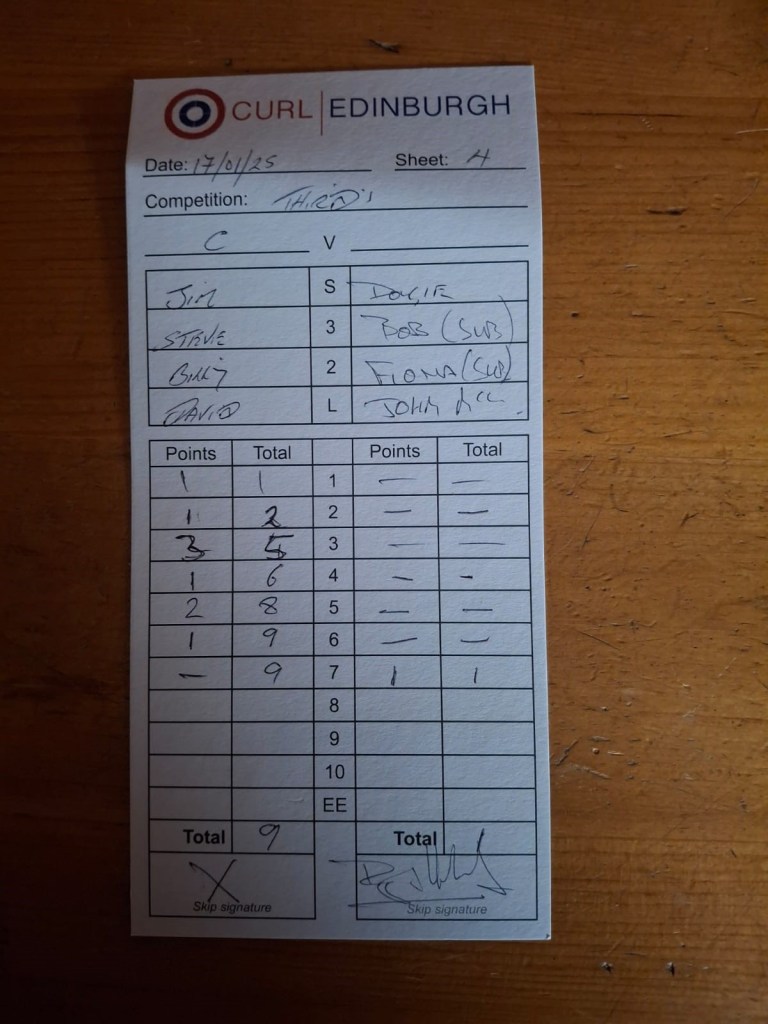 CURL | EDINBURGH
Date: 17/01/25 Sheet: 4
Competition: THIRD'S
C V
JIM S DOUGIE
STEVE 3 BOB (SUB)
BILLY 2 FIONA (SUB)
DAVID L JOHN MCC
Points Total Points Total
1 1 1 — —
1 2 2 — —
3 5 3 — —
1 6 4 — -
2 8 5 — —
1 9 6 — —
— 9 7 1 1
8
9
10
EE
Total 9 Total 1
X
Skip signature Skip signature